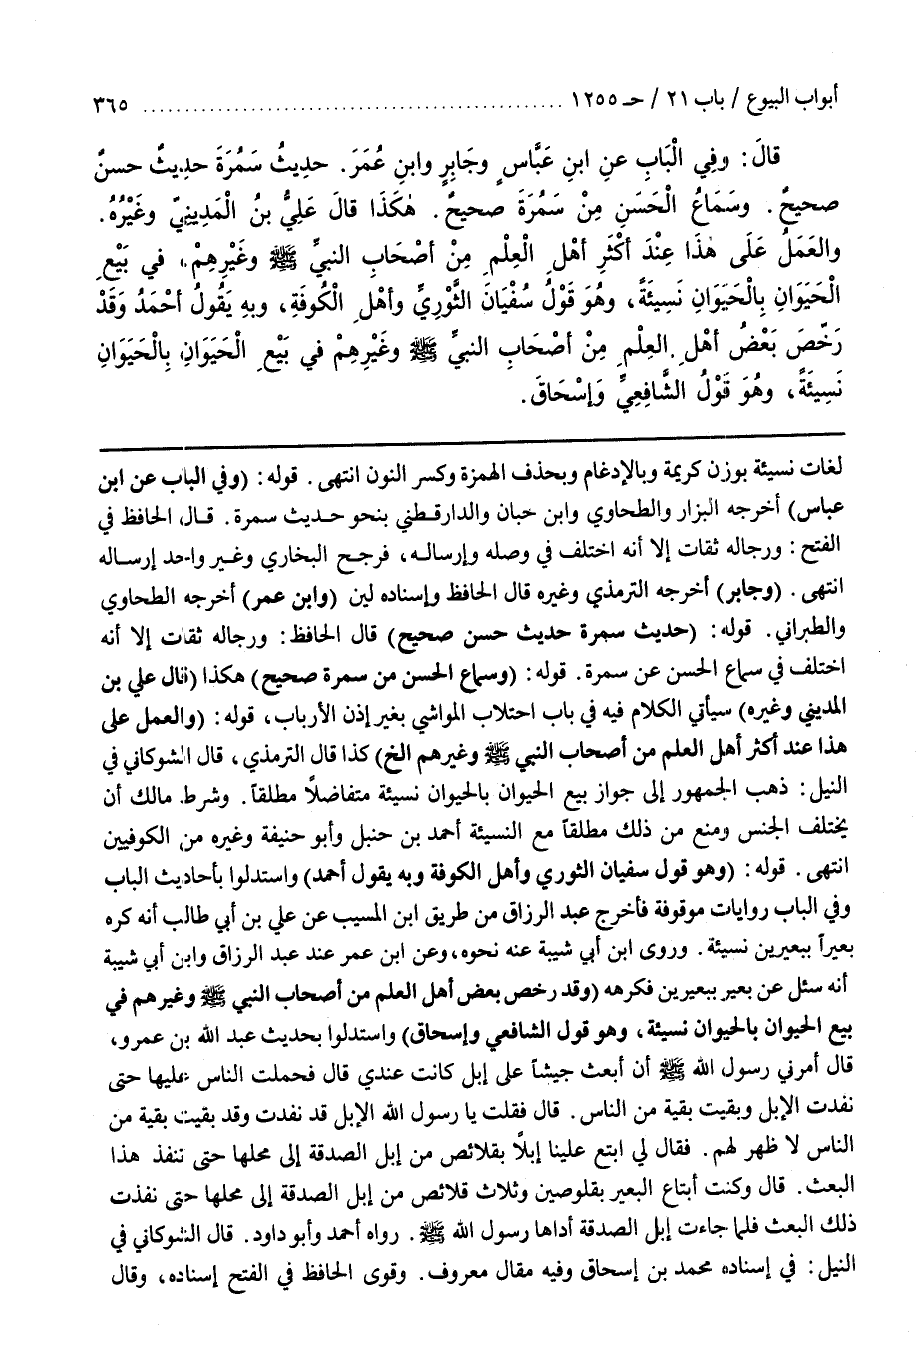 أبواب البيوع / باب ٢١ / حـ ١٢٥٥ .................................................. ٣٦٥
قالَ: وفِي الْبَابِ عنِ ابنِ عَبَّاسٍ وجَابِرٍ وابنِ عُمَرَ. حديثُ سَمُرَةَ حديثٌ حسنٌ
صحيحٌ. وسَمَاعُ الْحَسَنِ مِنْ سَمُرَةَ صحيحٌ. هٰكَذَا قالَ عَلِيُّ بنُ الْمَدِينِيِّ وغَيْرُهُ.
والعَمَلُ عَلَى هٰذَا عِنْدَ أكْثَرِ أهْلِ الْعِلْمِ مِنْ أصْحَابِ النبيِّ ﷺ وغَيْرِهِمْ، في بَيْعِ
الْحَيَوَانِ بِالْحَيَوَانِ نَسِيئَةً، وهُوَ قَوْلُ سُفْيَانَ الثَّوْرِيِّ وأهْلِ الْكُوفَةِ، وبهِ يَقُولُ أحْمَدُ وَقَدْ
رَخَّصَ بَعْضُ أهْلِ العِلْمِ مِنْ أصْحَابِ النبيِّ ﷺ وغَيْرِهِمْ في بَيْعِ الْحَيَوَانِ بِالْحَيَوَانِ
نَسِيئَةً، وهُوَ قَوْلُ الشَّافِعِيِّ وَإسْحَاقَ.
لغات نسيئة بوزن كريمة وبالإدغام وبحذف الهمزة وكسر النون انتهى. قوله: (وفي الباب عن ابن
عباس) أخرجه البزار والطحاوي وابن حبان والدارقطني بنحو حديث سمرة. قال الحافظ في
الفتح: ورجاله ثقات إلا أنه اختلف في وصله وإرساله، فرجح البخاري وغير واحد إرساله
انتهى. (وجابر) أخرجه الترمذي وغيره قال الحافظ وإسناده لين (وابن عمر) أخرجه الطحاوي
والطبراني. قوله: (حديث سمرة حديث حسن صحيح) قال الحافظ: ورجاله ثقات إلا أنه
اختلف في سماع الحسن عن سمرة. قوله: (وسماع الحسن من سمرة صحيح) هكذا (قال علي بن
المديني وغيره) سيأتي الكلام فيه في باب احتلاب المواشي بغير إذن الأرباب، قوله: (والعمل على
هذا عند أكثر أهل العلم من أصحاب النبي ﷺ وغيرهم الخ) كذا قال الترمذي، قال الشوكاني في
النيل: ذهب الجمهور إلى جواز بيع الحيوان بالحيوان نسيئة متفاضلاً مطلقاً. وشرط مالك أن
يختلف الجنس ومنع من ذلك مطلقاً مع النسيئة أحمد بن حنبل وأبو حنيفة وغيره من الكوفيين
انتهى. قوله: (وهو قول سفيان الثوري وأهل الكوفة وبه يقول أحمد) واستدلوا بأحاديث الباب
وفي الباب روايات موقوفة فأخرج عبد الرزاق من طريق ابن المسيب عن علي بن أبي طالب أنه كره
بعيراً ببعيرين نسيئة. وروى ابن أبي شيبة عنه نحوه، وعن ابن عمر عند عبد الرزاق وابن أبي شيبة
أنه سئل عن بعير ببعيرين فكرهه (وقد رخص بعض أهل العلم من أصحاب النبي ﷺ وغيرهم في
بيع الحيوان بالحيوان نسيئة، وهو قول الشافعي وإسحاق) واستدلوا بحديث عبد الله بن عمرو،
قال أمرني رسول الله ﷺ أن أبعث جيشاً على إبل كانت عندي قال فحملت الناس عليها حتى
نفدت الإبل وبقيت بقية من الناس. قال فقلت يا رسول الله الإبل قد نفدت وقد بقيت بقية من
الناس لا ظهر لهم. فقال لي ابتع علينا إبلاً بقلائص من إبل الصدقة إلى محلها حتى تنفذ هذا
البعث. قال وكنت أبتاع البعير بقلوصين وثلاث قلائص من إبل الصدقة إلى محلها حتى نفذت
ذلك البعث فلما جاءت إبل الصدقة أداها رسول الله ﷺ. رواه أحمد وأبو داود. قال الشوكاني في
النيل: في إسناده محمد بن إسحاق وفيه مقال معروف. وقوى الحافظ في الفتح إسناده، وقال